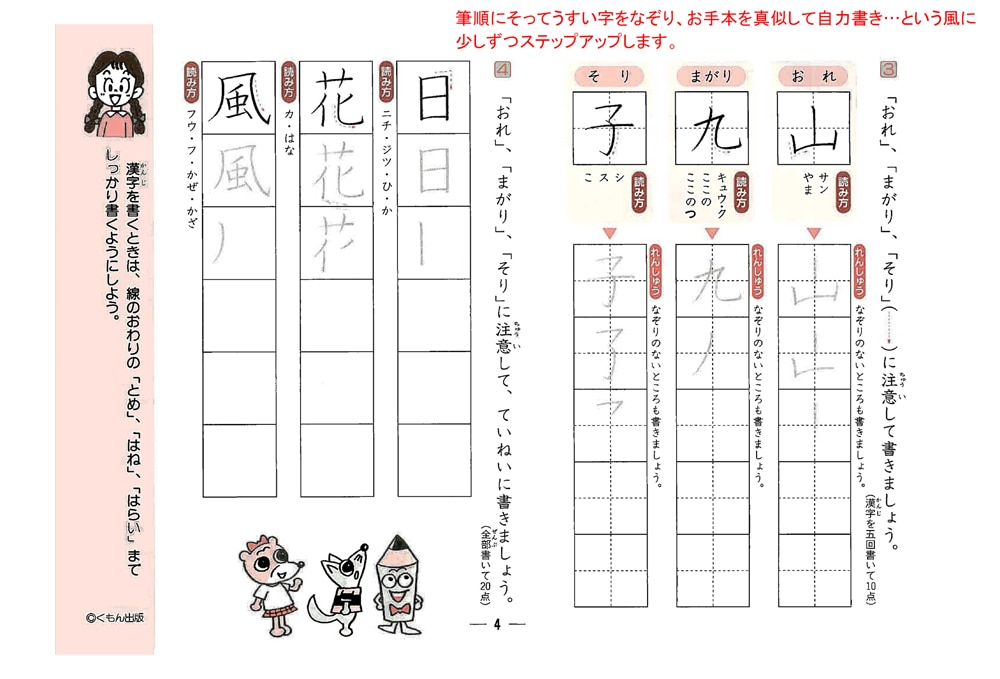 筆順にそってうすい字をなぞり、お手本を真似して自力書き…という風に
少しずつステップアップします。
3
「おれ」、「まがり」、「そり」(……)に注意して書きましょう。
ちゅう い
(漢字を五回書いて10点)
かんじ
おれ
山
読み方
サン
やま
れんしゅう
なぞりのないところも書きましょう。
山
山
まがり
九
読み方
キュウ・ク
ここの
ここのつ
れんしゅう
なぞりのないところも書きましょう。
九
そり
子
読み方
シ
ス
こ
れんしゅう
なぞりのないところも書きましょう。
子
子
4
「おれ」、「まがり」、「そり」に注意して、ていねいに書きましょう。
ちゅう い
(全部書いて20点)
ぜんぶ
日
日
読み方
ニチ・ジツ・ひ・か
花
花
花
読み方
カ・はな
風
風
読み方
フウ・フ・かぜ・かざ
漢字を書くときは、線のおわりの「とめ」、「はね」、「はらい」まで
かんじ
しっかり書くようにしよう。
©くもん出版
4